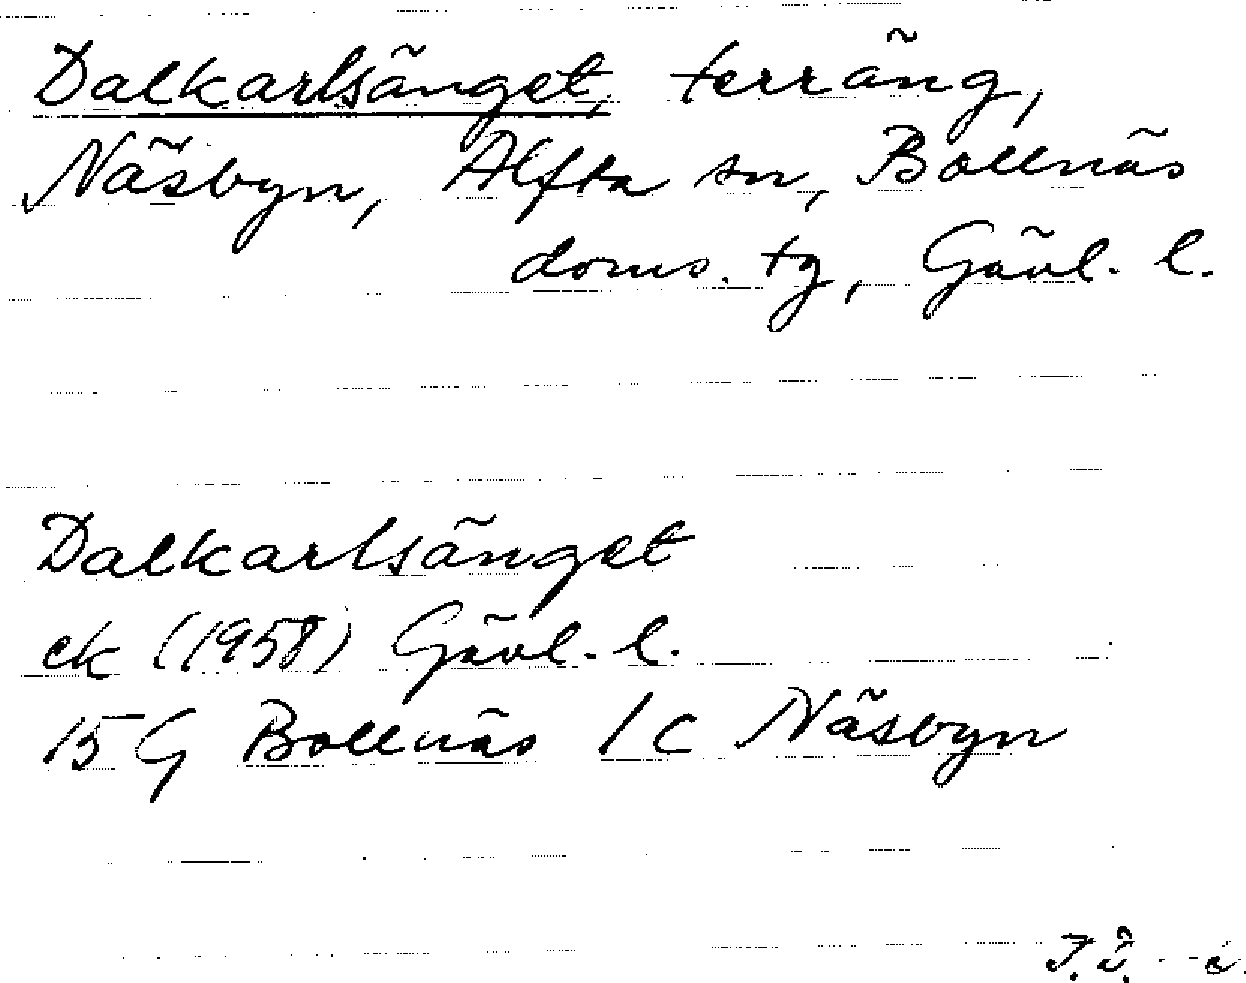 Dalkarlsänget, terräng,
Näsbyn, Alfta sn, Bollnäs
doms. tg, Gävl. l.
Dalkarlsänget
ek (1958) Gävl. l.
15 G Bollnäs 1c Näsbyn